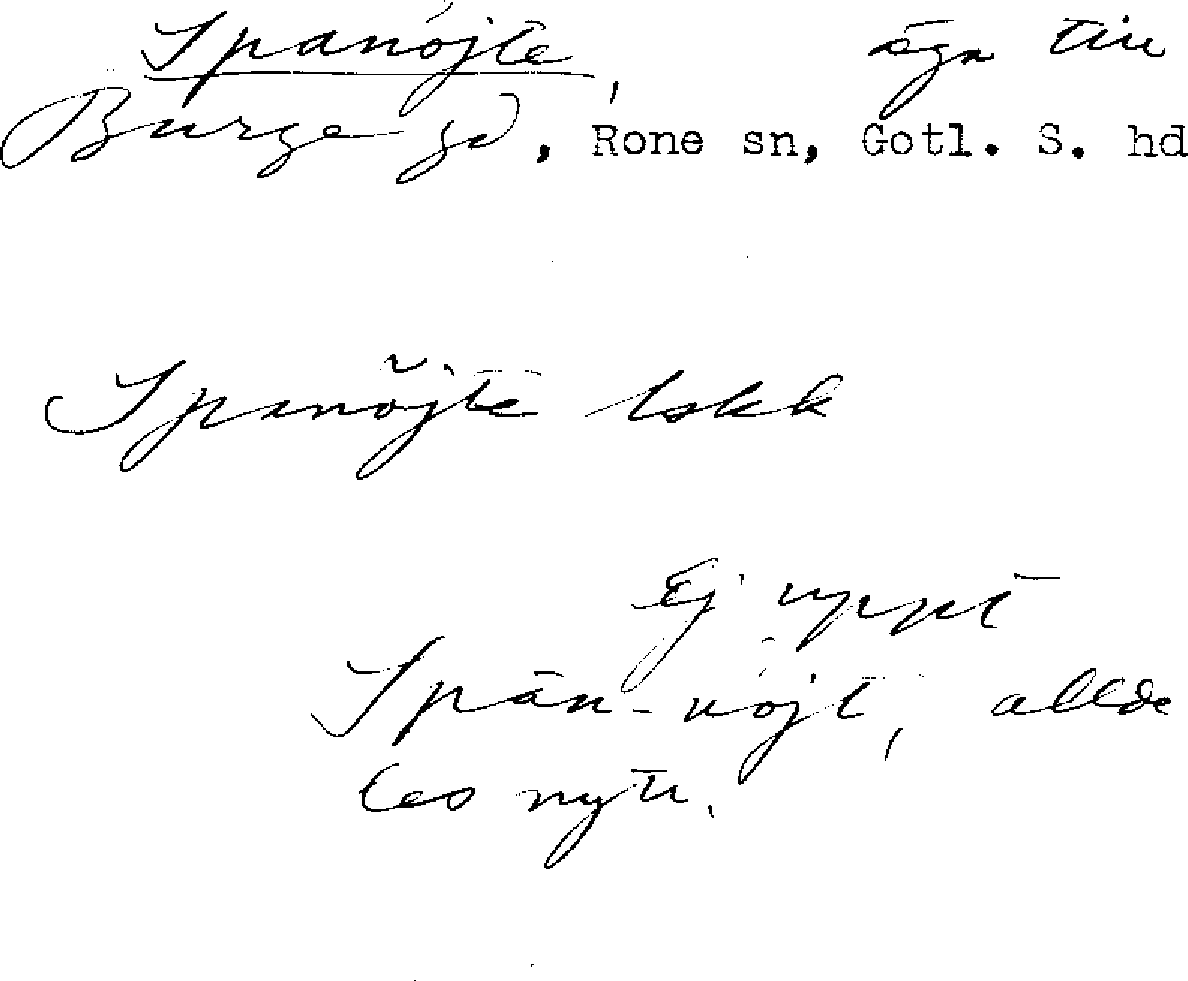 Spanöjte, äga till
Burge gd, Rone sn, Gotl. S. hd
Spanöjte lskk
Ej uppt
Spån-nöjt, allde
les nytt.